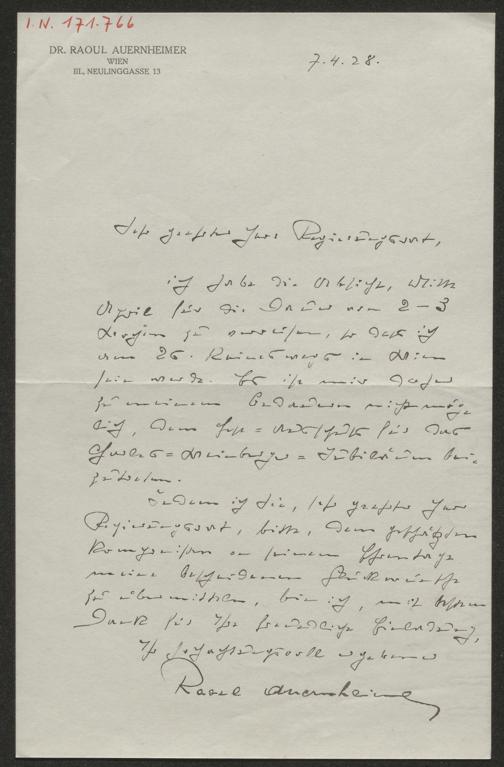 I. N. 171.766
DR. RAOUL AUERNHEIMER
WIEN
III., NEULINGGASSE 13
7.4.28.
Sehr geehrter Herr Regierungsrat,
ich habe die Absicht, Mitte
April für die Dauer von 2-3
Wochen zu verreisen, so daß ich
am 26. keineswegs in Wien
sein werde. Es ist mir daher
zu meinem Bedauern nicht mög-
lich, dem Fest= für das
Charles=Weinberger=Jubiläum bei-
zutreten.
Indem ich Sie, sehr geehrter Herr
Regierungsrat, bitte, dem geschätzten
Komponisten an seinem Ehrentage
meine bescheidenen Glückwünsche
zu übermitteln, bin ich, mit bestem
Dank für Ihre freundliche Einladung,
Ihr hochachtungsvoll ergebener
Raoul Auernheimer